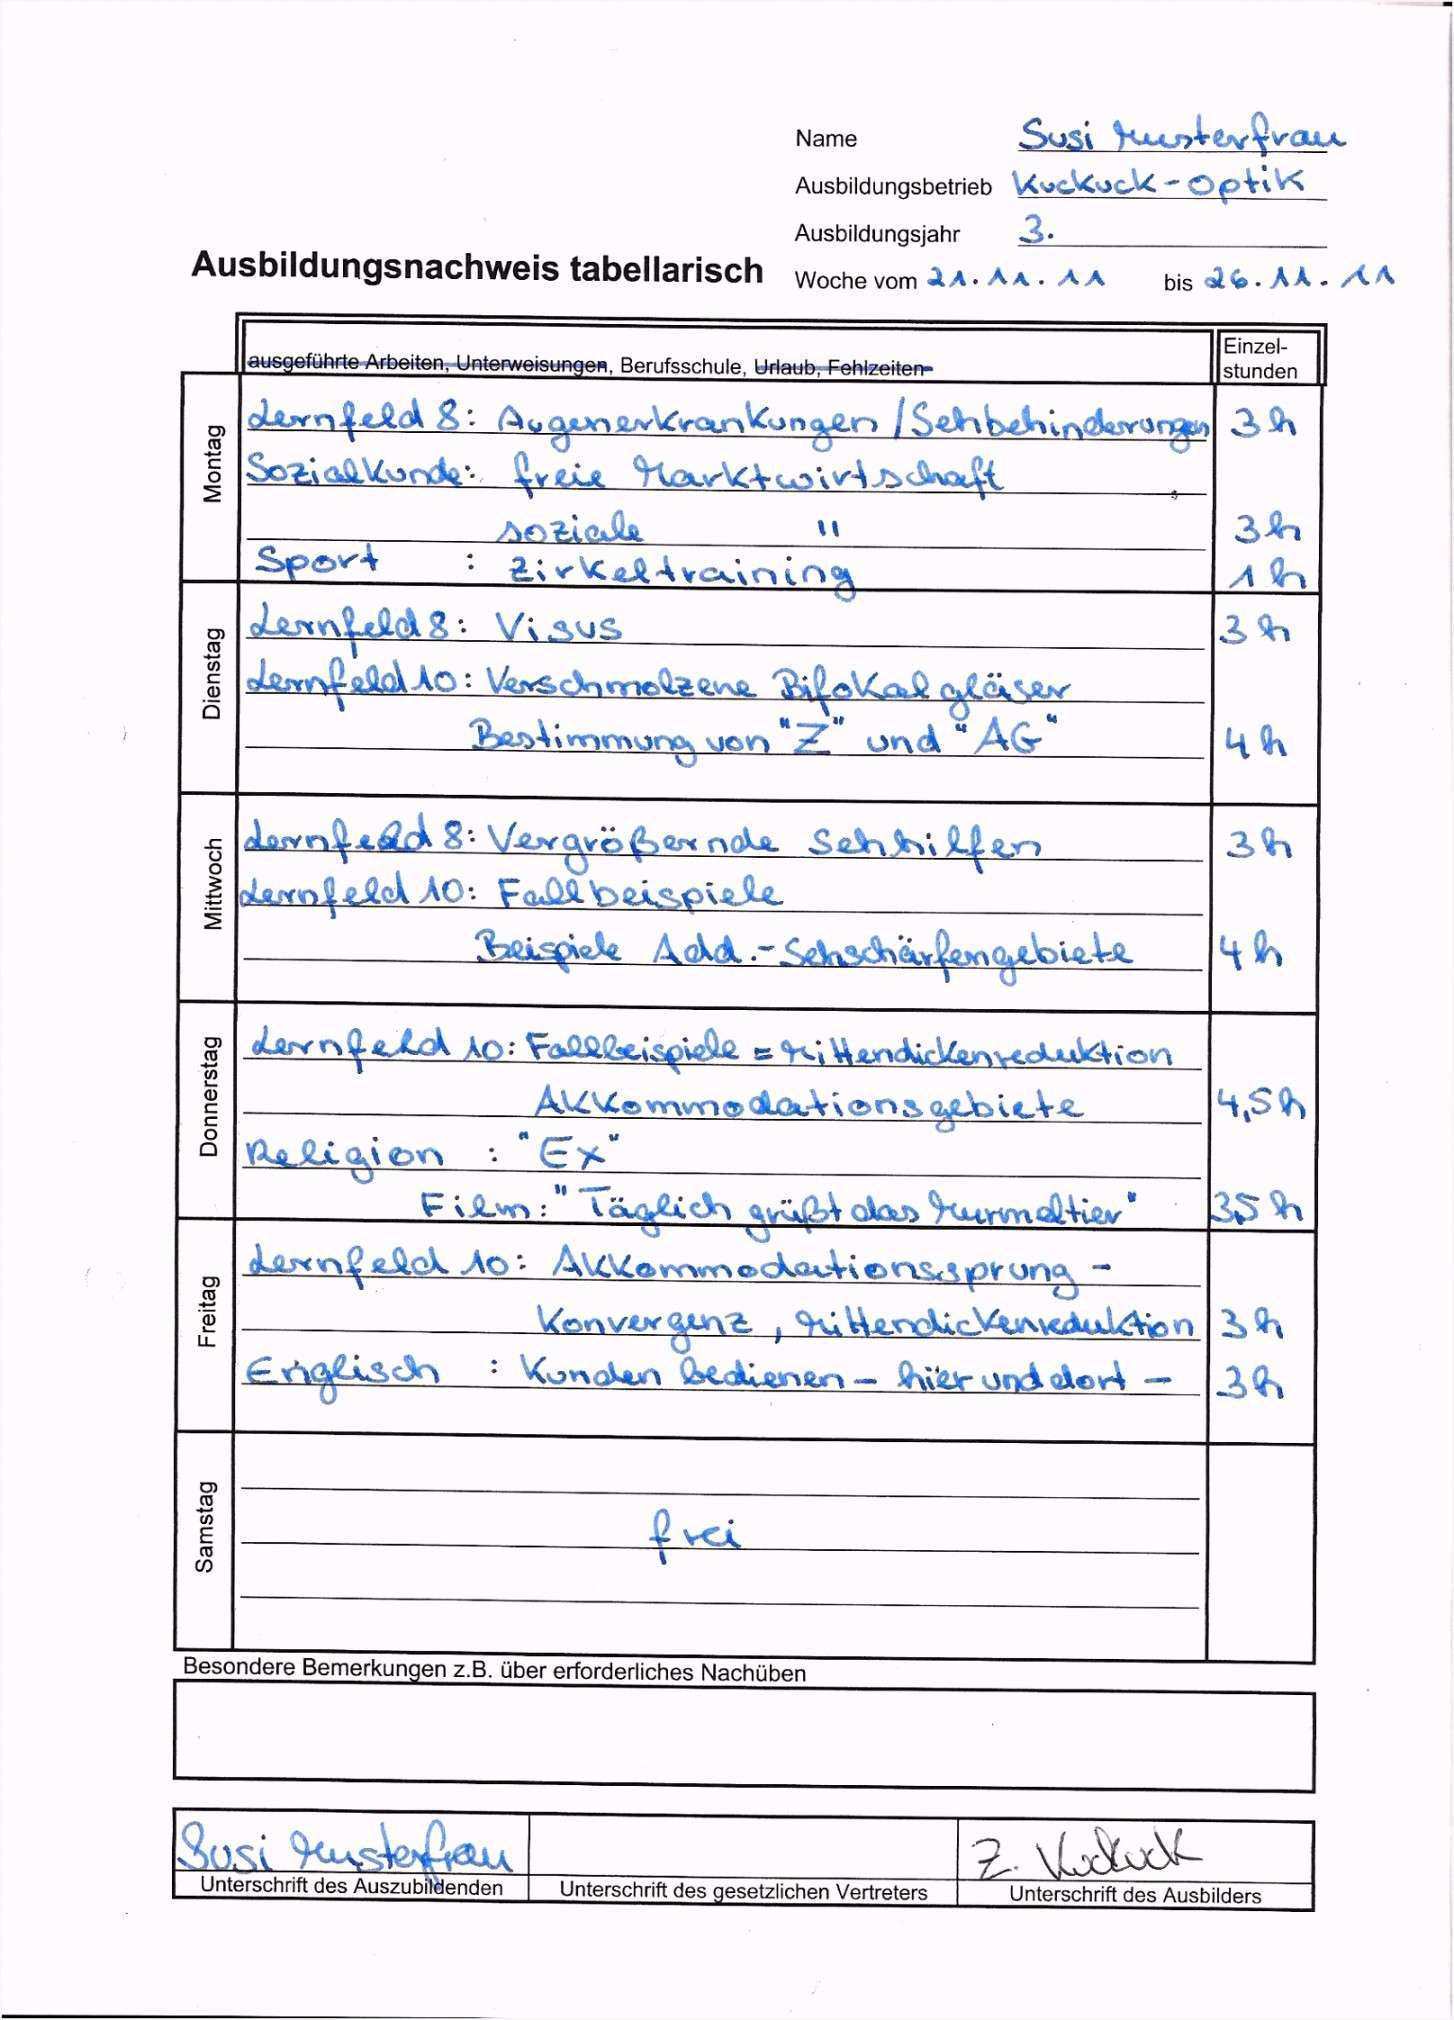 Name Susi Musterfrau
Ausbildungsbetrieb Kuckuck-Optik
Ausbildungsjahr 3.
Ausbildungsnachweis tabellarisch Woche vom 21.11.11 bis 26.11.11
ausgeführte Arbeiten, Unterweisungen, Berufsschule, Urlaub, Fehlzeiten Einzel-
stunden
Montag
Lernfeld 8: Augenerkrankungen / Sehbehinderungen 3 h
Sozialkunde: freie Marktwirtschaft
soziale " 3 h
Sport : Zirkeltraining 1 h
Dienstag
Lernfeld 8: Visus 3 h
Lernfeld 10: Verschmolzene Bifokalgläser
Bestimmung von "Z" und "AG" 4 h
Mittwoch
Lernfeld 8: Vergrößernde Sehhilfen 3 h
Lernfeld 10: Fallbeispiele
Beispiele Add.-Sehschärfengebiete 4 h
Donnerstag
Lernfeld 10: Fallbeispiele = Mittendickenreduktion
Akkommodationsgebiete 4,5 h
Religion : "Ex"
Film: "Täglich grüßt das Murmeltier" 3,5 h
Freitag
Lernfeld 10: Akkommodationssprung -
Konvergenz, Mittendickenreduktion 3 h
Englisch : Kunden bedienen - hier und dort - 3 h
Samstag
frei
Besondere Bemerkungen z.B. über erforderliches Nachüben
Susi Musterfrau Z. Kuckuck
Unterschrift des Auszubildenden Unterschrift des gesetzlichen Vertreters Unterschrift des Ausbilders